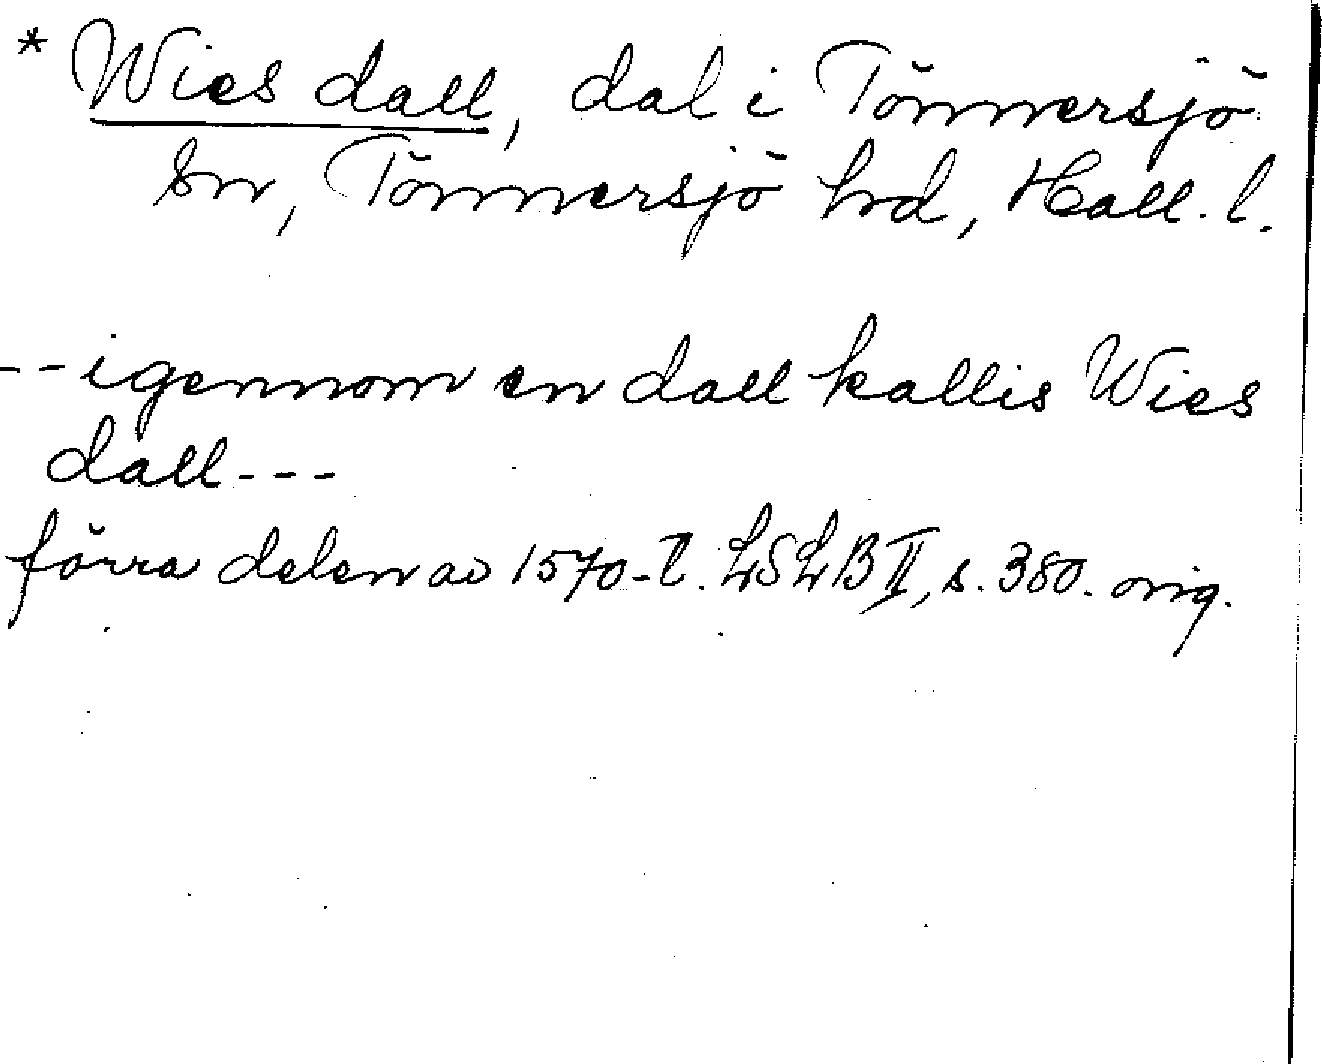 * Wies dall, dal i Tönnersjö
sn, Tönnersjö hrd, Hall. l.
--igennom en dall kallis Wies
dall---
förra delen av 1570-t. LSLB II, s. 380. orig.